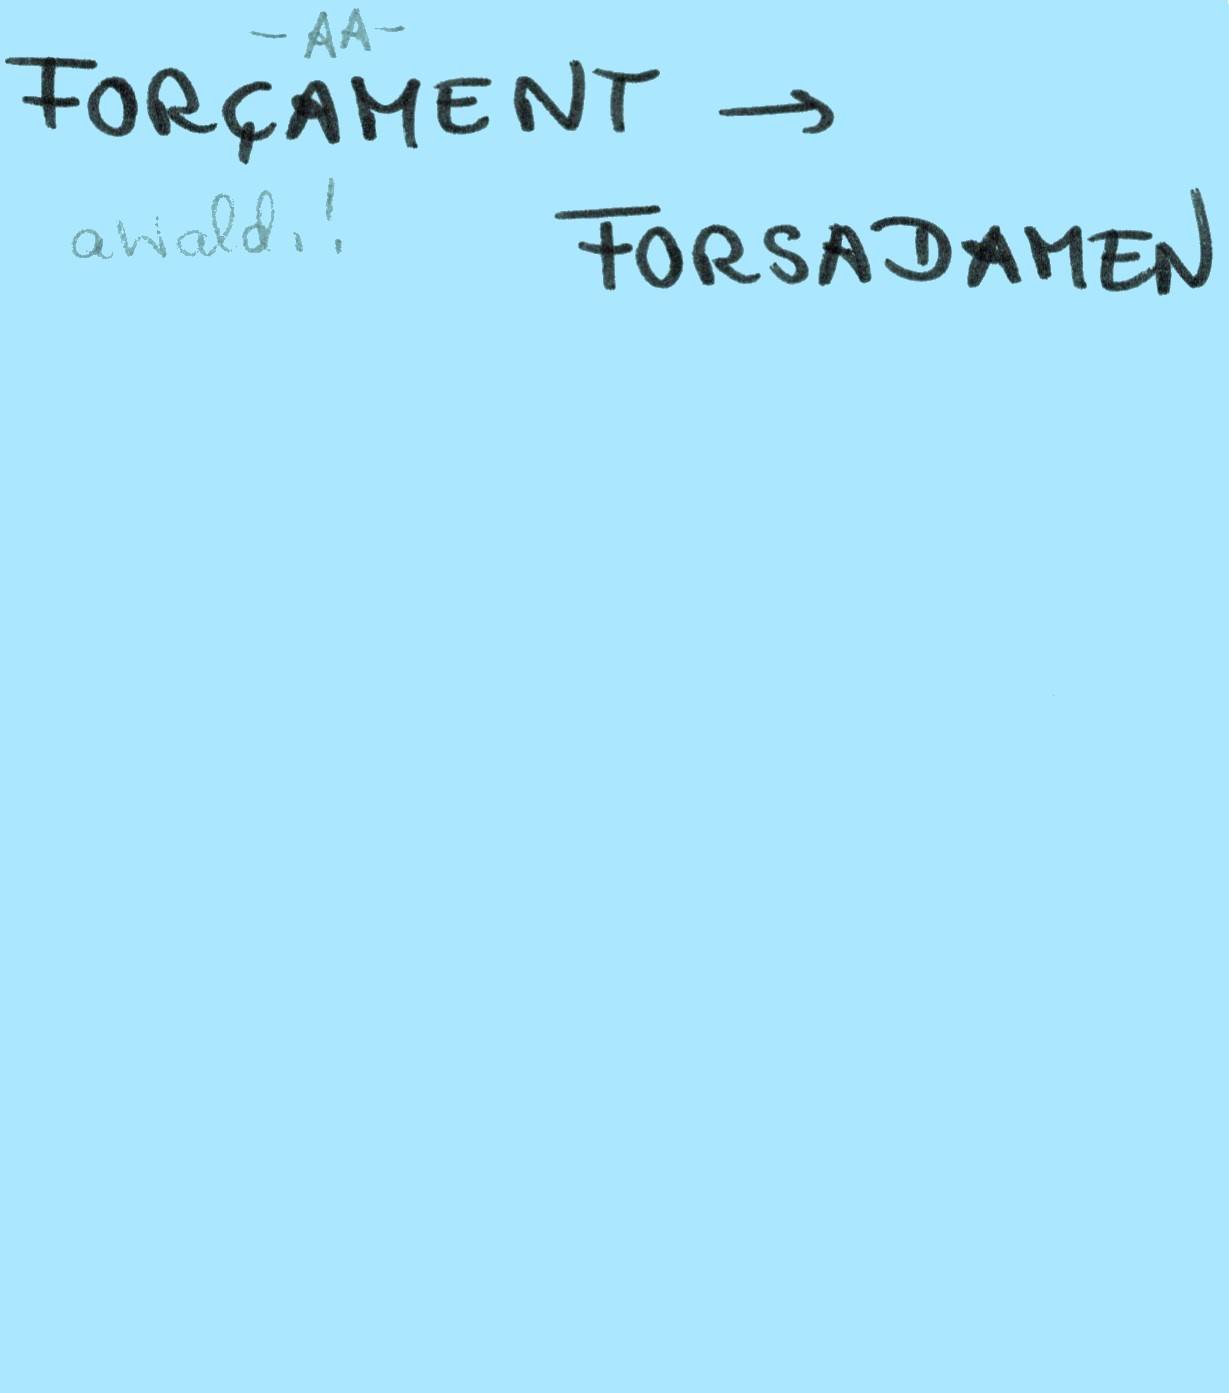 -AA-
FORÇAMENT →
awald.!
FORSADAMEN